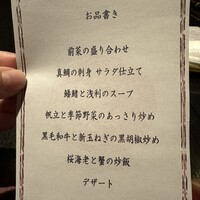 お品書き
前菜の盛り合わせ
真鯛の刺身 サラダ仕立て
鱶鰭と浅利のスープ
帆立と季節野菜のあっさり炒め
黒毛和牛と新玉ねぎの黒胡椒炒め
桜海老と蟹の炒飯
デザート